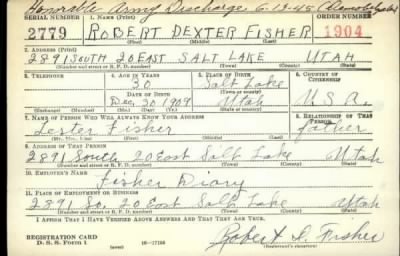 Honorable Army Discharge 6-13-45
SERIAL NUMBER 1. NAME (Print) ORDER NUMBER
2779 ROBERT DEXTER FISHER 1904
(First) (Middle) (Last)
2. ADDRESS (Print)
2891 SOUTH 20 EAST SALT LAKE UTAH
(Number and street or R. F. D. number) (Town) (County) (State)
3. TELEPHONE 4. AGE IN YEARS 5. PLACE OF BIRTH 6. COUNTRY OF CITIZENSHIP
30 Salt Lake
DATE OF BIRTH (Town or county)
Dec. 30 1909 Utah U.S.A.
(Exchange) (Number) (Mo.) (Day) (Yr.) (State or country)
7. NAME OF PERSON WHO WILL ALWAYS KNOW YOUR ADDRESS 8. RELATIONSHIP OF THAT PERSON
Lester Fisher father
(Mr., Mrs., Miss) (First) (Middle) (Last)
9. ADDRESS OF THAT PERSON
2891 South 20 East Salt Lake Utah
(Number and street or R. F. D. number) (Town) (County) (State)
10. EMPLOYER'S NAME
Fisher Diary
11. PLACE OF EMPLOYMENT OR BUSINESS
2891 So. 20 East Salt Lake Utah
(Number and street or R. F. D. number) (Town) (County) (State)
I AFFIRM THAT I HAVE VERIFIED ABOVE ANSWERS AND THAT THEY ARE TRUE.
REGISTRATION CARD
D. S. S. Form 1 (over) 16-17105 Robert D. Fisher
(Registrant's signature)